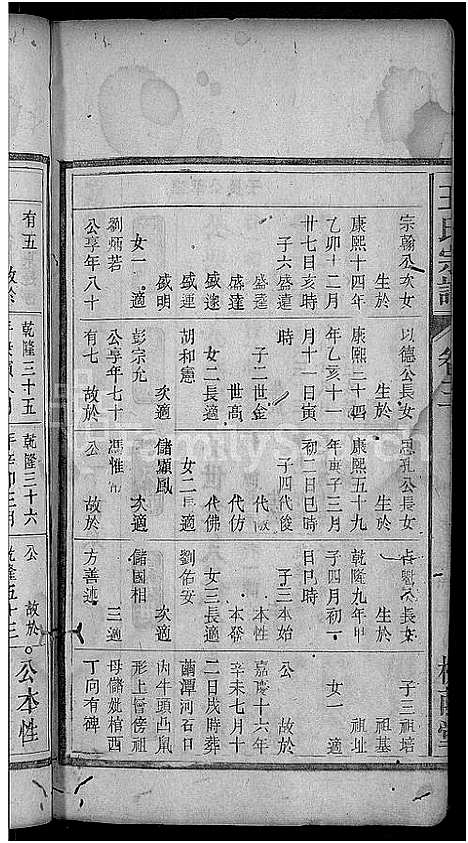 王氏宗譜
卷之
宗翰公次女
生於
康熙十四年
乙卯十二月
廿七日亥時
子六盛達
盛達
盛達
盛運
盛明
女一適
劉炳若
公享年八十
以德公長女
生於
康熙三十四
年乙亥十一
月十一日寅
時
子二世金
世高
女二長適
胡和憲
次適
彭宗允
公享年七十
有七 故於
思孔公長女
生於
康熙五十九
年庚子三月
初二日巳時
子四代後
代
代仿
代佛
女二長適
儲顯鳳
次適
馮惟
公 故於
公長女
生於
乾隆九年甲
子四月初一
日巳時
子三本始
本性
本發
女三長適
劉佑安
次適
儲國相
三適
方善連
子三祖培
祖基
祖址
女一適
公 故於
嘉慶十六年
辛未七月十
二日戌時葬
繭潭河石口
內牛頭凸鼠
形上首傍祖
母儲妣棺西
丁向有碑
有五 故於
乾隆三十五
乾隆三十六
年辛卯三月
公 故於
乾隆五十三
公本性
FamilySearch